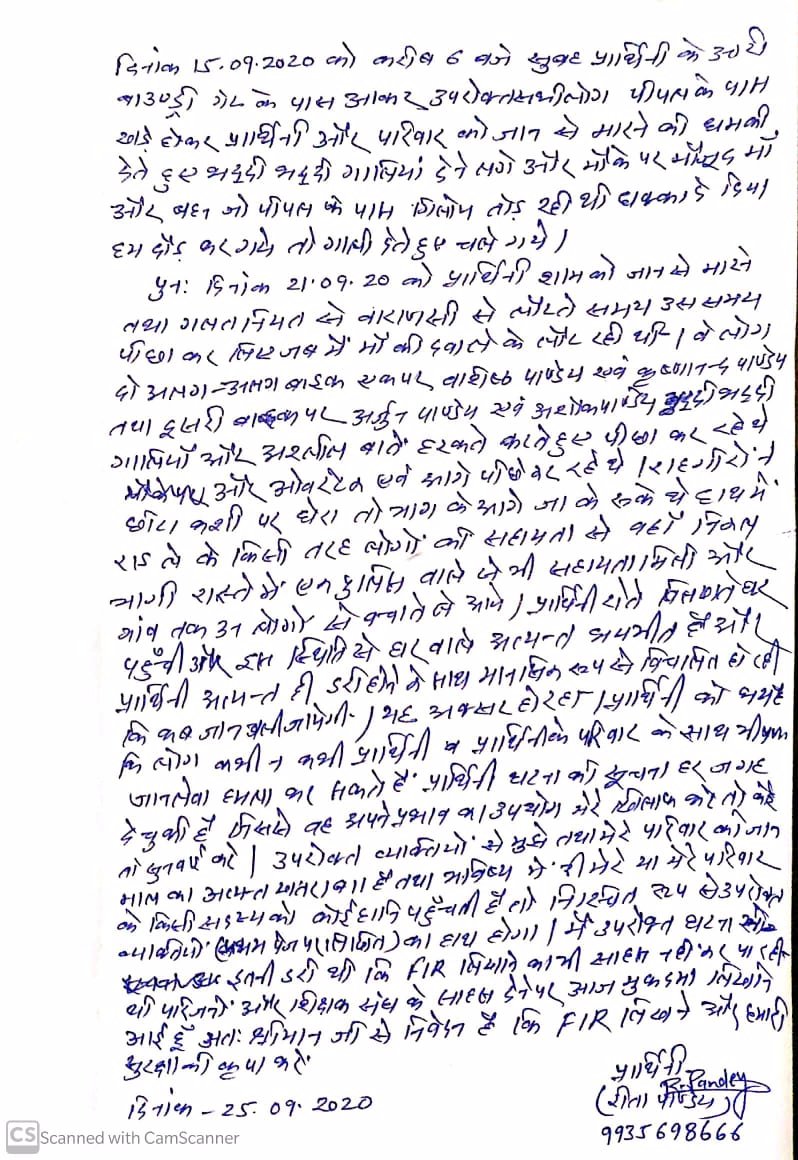 दिनांक 15.09.2020 को करीब 6 बजे सुबह प्रार्थिनी के
बाउण्ड्री गेट के पास आकर उपरोक्त सभी लोग पीपल के पास
खड़े होकर प्रार्थिनी और परिवार को जान से मारने की धमकी
देते हुए भद्दी भद्दी गालियां देने लगे और मौके पर मौजूद माँ
और बहन जो पीपल के पास गिलोय तोड़ रही थी धक्का दे दिया
हम दौड़ कर गये तो गाली देते हुए चले गये।
पुनः दिनांक 21.09.20 को प्रार्थिनी शाम को जान से मारने
तथा गलत नियत से वाराणसी से लौटते समय उस समय
पीछा कर लिए जब मैं माँ की दवा लेके लौट रही थी। वे लोग
दो अलग-अलग बाइक एक पर वाशिष्ठ पाण्डेय एवं कृष्णानन्द पाण्डेय
तथा दूसरी बाइक पर अर्जुन पाण्डेय एवं अशोक पाण्डेय भद्दी भद्दी
गालियाँ और अश्लील बाते हरकते करते हुए पीछा कर रहे थे
और ओवरटेक एवं आगे पीछे कर रहे थे। राहगीरो ने
छोटा कशी पर घेरा तो भाग के आगे जा के रुके थे हाथ में
राड ले के किसी तरह लोगों की सहायता से वहाँ निकल
भागी रास्ते में एक पुलिस वाले से भी सहायता मिली और
गांव तक उन लोगो से बचाते ले आये। प्रार्थिनी रोते बिलखते घर
पहुँची और इस स्थिति से घर वाले अत्यन्त भयभीत हैं और
प्रार्थिनी अत्यन्त ही डरी होने के साथ मानसिक रूप से विचलित हो रही
कि कब जान चली जायेगी। यह अक्सर हो रहा। प्रार्थिनी को भय है
कि लोग कभी न कभी प्रार्थिनी व प्रार्थिनी के परिवार के साथ भी
जानलेवा हमला कर सकते हैं प्रार्थिनी घटना की सूचना हर जगह
दे चुकी है जिससे वह अपने प्रभाव का उपयोग मेरे खिलाफ करे तो
करे। उपरोक्त व्यक्तियों से मुझे तथा मेरे परिवार को जान
माल का अत्यन्त खतरा है तथा भविष्य में भी मेरे या मेरे परिवार
के किसी सदस्य को कोई हानि पहुँचती है तो निश्चित रूप से उपरोक्त
व्यक्तियों (प्रथम पेज पर लिखित) का हाथ होगा। मैं उपरोक्त घटना
इतनी डरी थी कि FIR लिखाने का भी साहस नहीं कर पा रही
थी परिजनो और शिक्षक संघ के साहस देने पर आज मुकदमा लिखाने
आई हूँ अतः श्रीमान जी से निवेदन है कि FIR लिखने और हमारी
सुरक्षा की कृपा करें
प्रार्थिनी
R. Pandey
(रीता पाण्डेय)
दिनांक - 25.09.2020
9935698666
CS Scanned with CamScanner